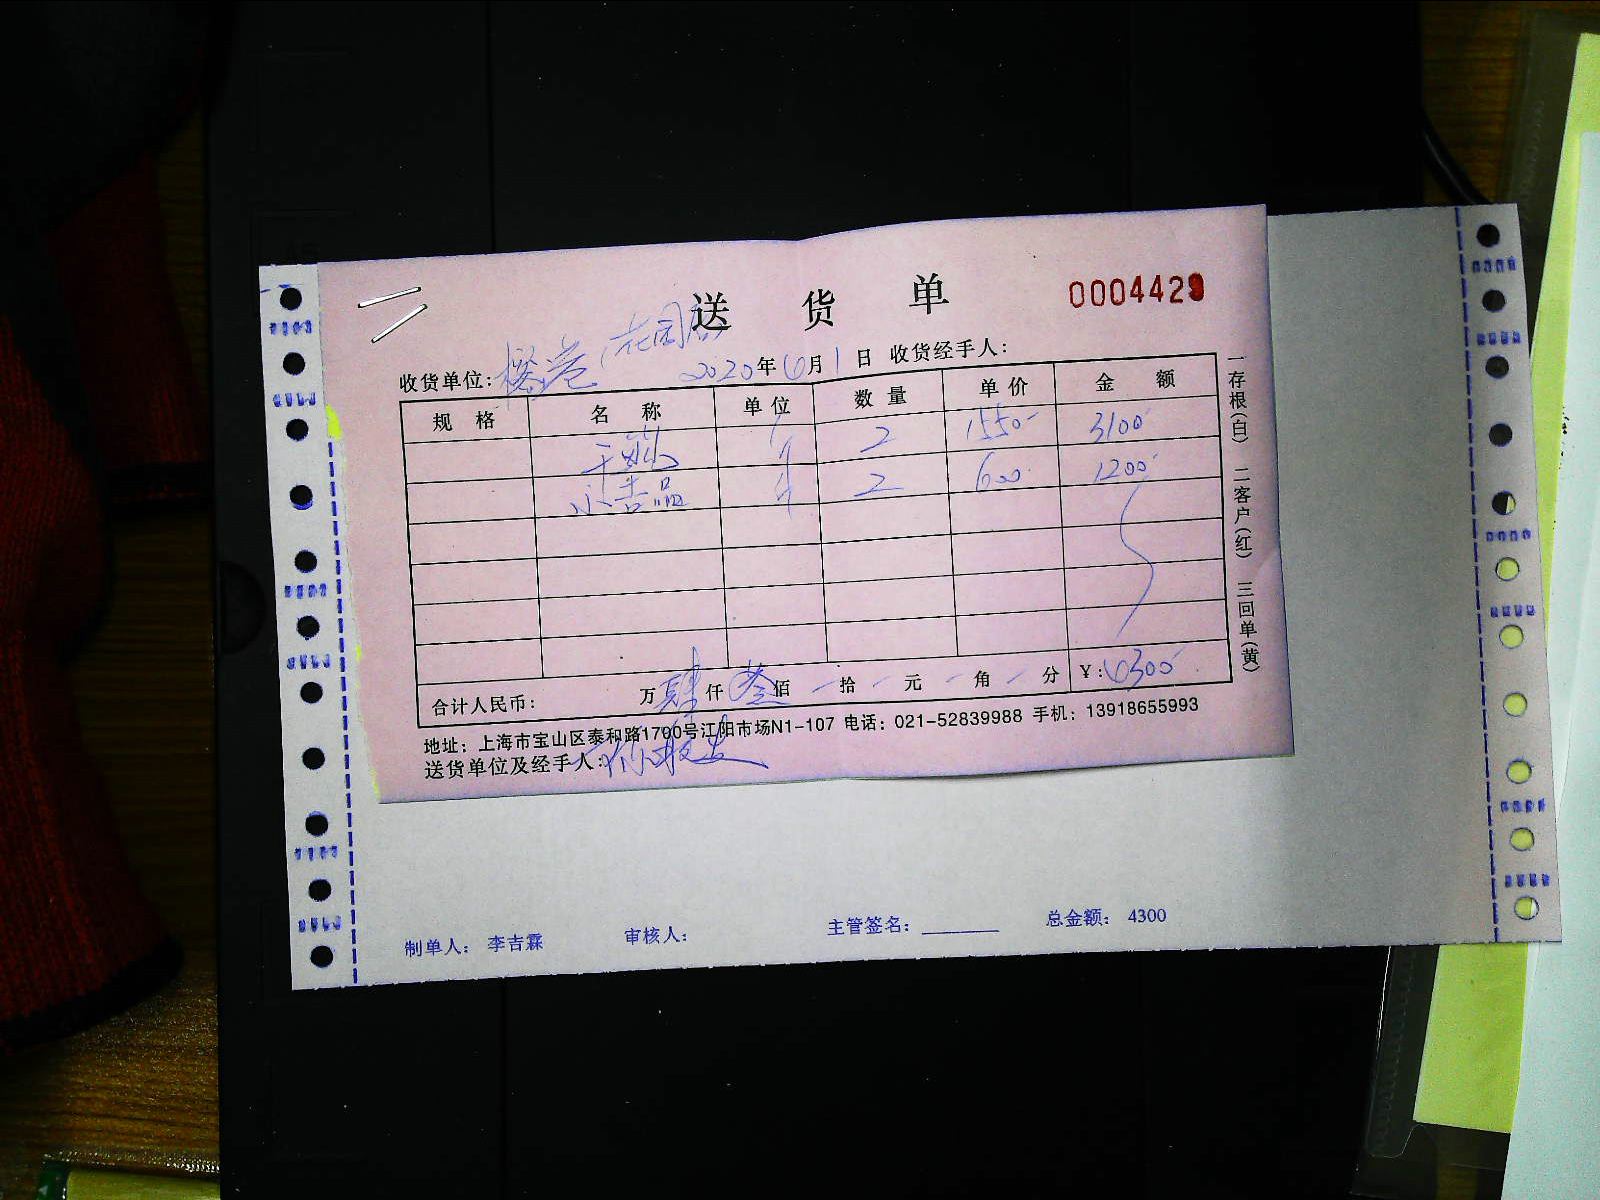 送货单 0004429
收货单位: (花园店) 2020年6月1日 收货经手人:
规格 名称 单位 数量 单价 金额
干贝 斤 2 1550 3100
斤 2 600 1200
合计人民币: 万肆仟叁佰 拾 元 角 分 ¥:4300
地址: 上海市宝山区泰和路1700号江阳市场N1-107 电话: 021-52839988 手机: 13918655993
送货单位及经手人:
一存根(白) 二客户(红) 三回单(黄)
制单人: 李吉霖 审核人: 主管签名: 总金额: 4300